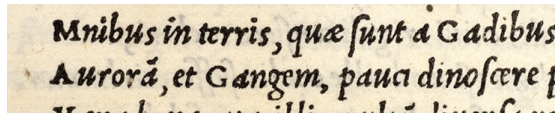 Mnibus in terris, quæ ſunt à Gadibus
Aurorã, et Gangem, pauci dinoſcere